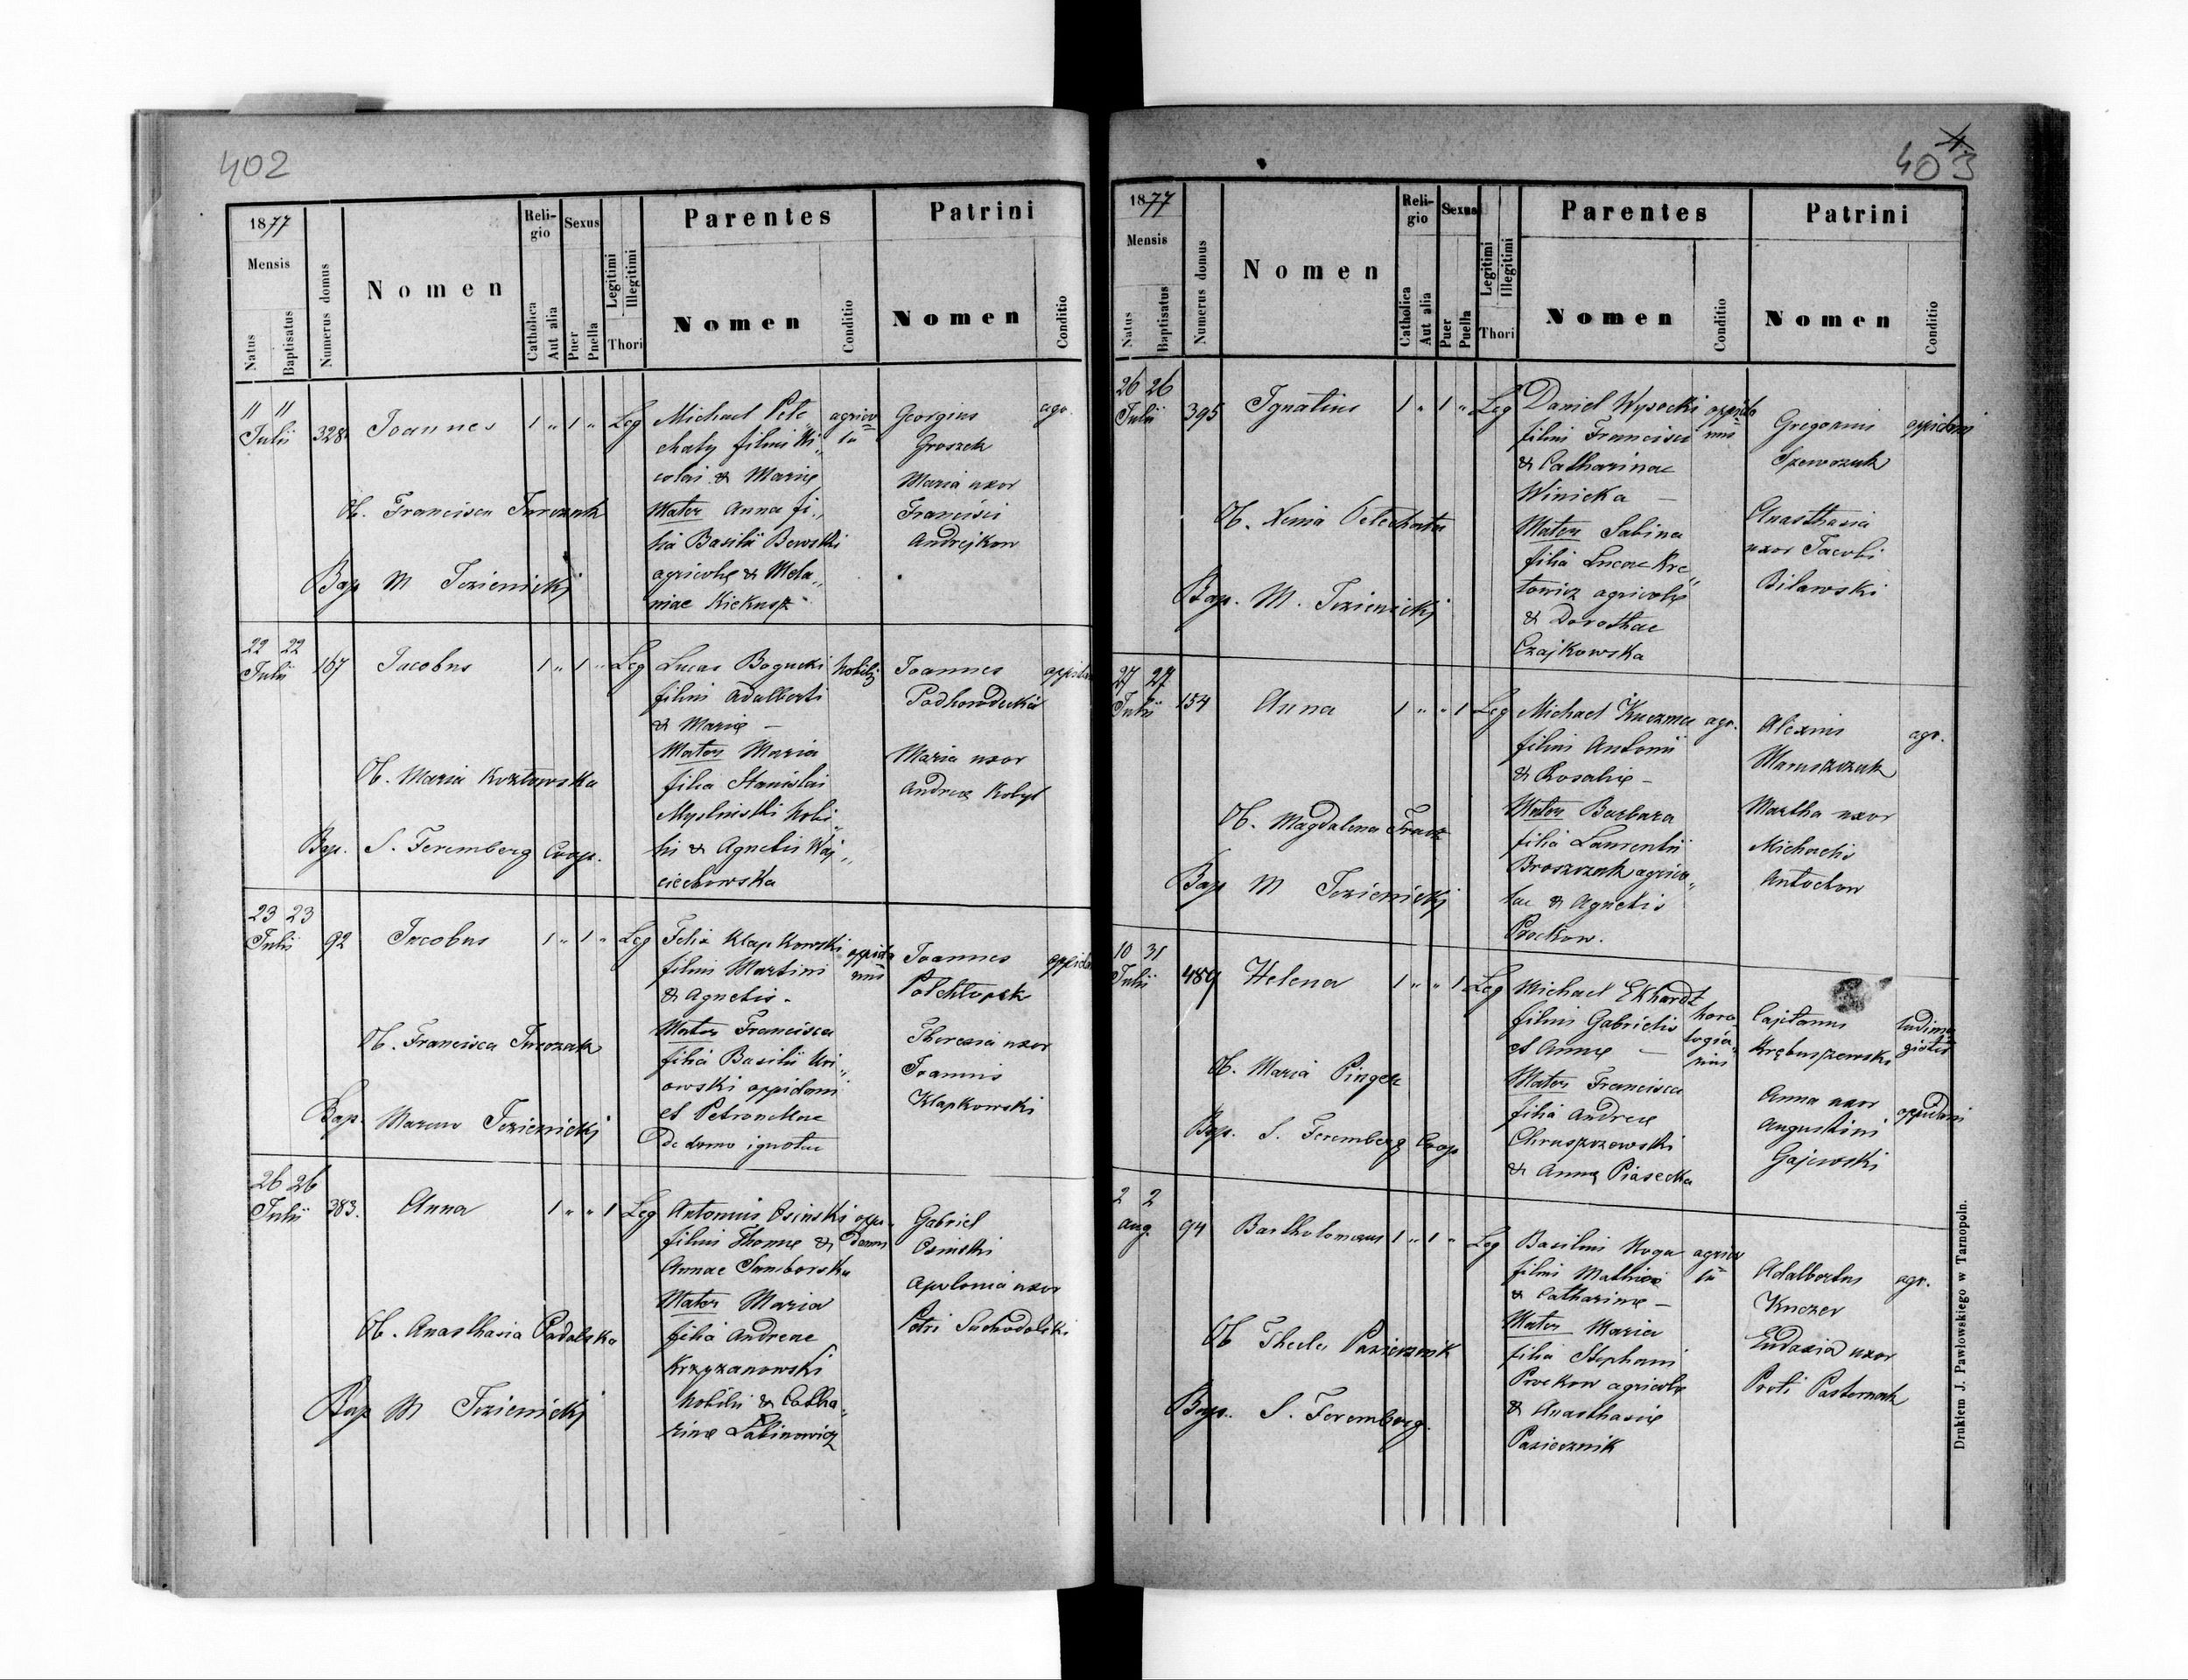 402
1877
Mensis
Natus
Baptisatus
Numerus domus
Nomen
Religio
Catholica
Aut alia
Sexus
Puer
Puella
Legitimi
Illegitimi
Thori
Parentes
Nomen
Conditio
Patrini
Nomen
Conditio
11 11
Julii 328 Joannes 1 " 1 " Leg
Michael Pele
chaty filius Ni
colai & Mariae
Mater Anna fi
lia Basilii Bewski
agricolae & Mela
niae Kiekusz
agrico
la
Georgius
Groszek
Maria uxor
Francisci
Andrejkow
agr.
Ob. Francisca Turczak
Bap M Jezienicki
22 22
Julii 167 Jacobus 1 " 1 " Leg
Lucas Bogucki
filius Adalberti
& Mariae
Mater Maria
filia Stanislai
Myslinski Nobi
lis & Agnetis Woj
ciechowska
Nobilis
Joannes
Podhorodecki
Maria uxor
Andreae Kobyl
Ob. Maria Kozłowska
Bap. S. Feremberg Coop.
23 23
Julii 92 Jacobus 1 " 1 " Leg
Felix Klapkowski
filius Martini
& Agnetis
Mater Francisca
filia Basilii
owski oppidani
et Petronellae
De domo ignotae
oppida
nus
Joannes
Polchlopek
Theresia uxor
Joannis
Klapkowski
Ob. Francisca Turczak
Bap. Marcus Jezienicki
26 26
Julii 383. Anna 1 " " 1 Leg
Antonius Osinski
filius Thomae &
Annae Samborska
Mater Maria
filia Andreae
Krzyzanowski
Nobilis & Catha
rinae Labinowicz
oppi
danus
Gabriel
Osinski
Apolonia uxor
Petri Suchodolski
Ob. Anasthasia Padalska
Bap M Jezienicki
403
1877
Mensis
Natus
Baptisatus
Numerus domus
Nomen
Religio
Catholica
Aut alia
Sexus
Puer
Puella
Legitimi
Illegitimi
Thori
Parentes
Nomen
Conditio
Patrini
Nomen
Conditio
26 26
Julii 395 Ignatius 1 " 1 " Leg
Daniel Wysocki
filius Francisci
& Catharinae
Winicka
Mater Sabina
filia Lucae Kre
towicz agricolae
& Dorothae
Czajkowska
oppida
nus
Gregorius
Szewczuk
Anasthasia
uxor Jacobi
Bilawski
oppidani
Ob. Xenia Pelechata
Bap. M. Jezienicki
27 27
Julii 154 Anna 1 " " 1 Leg
Michael Kuczma
filius Antonii
& Rosaliae
Mater Barbara
filia Laurentii
Broszczak agrico
lae & Agnetis
Prockow.
agr.
Alexius
Maruszczak
Martha uxor
Michaelis
Antochow
agr.
Ob. Magdalena Tracz
Bap M Jezienicki
10 31
Julii 489 Helena 1 " " 1 Leg
Michael Ekhardt
filius Gabrielis
et Annae
Mater Francisca
filia Andreae
Chruszczewski
& Annae Piasecka
horo
logia
rius
Cajetanus
Krębuszewski
Anna uxor
Augustini
Gajewski
ludima
gister
oppidani
Ob. Maria Pinger
Bap. S. Feremberg Coop
2 2
Aug. 94 Bartholomaeus 1 " 1 " Leg
Basilius Noga
filius Mathiae
& Catharinae
Mater Maria
filia Stephani
Prockow agricolae
& Anasthasiae
Pasicznik
agrico
la
Adalbertus
Kuczer
Eudoxia uxor
Proti Pasternak
agr.
Ob Thecla Pasieczník
Bap. S. Feremberg.
Drukiem J. Pawłowskiego w Tarnopolu.